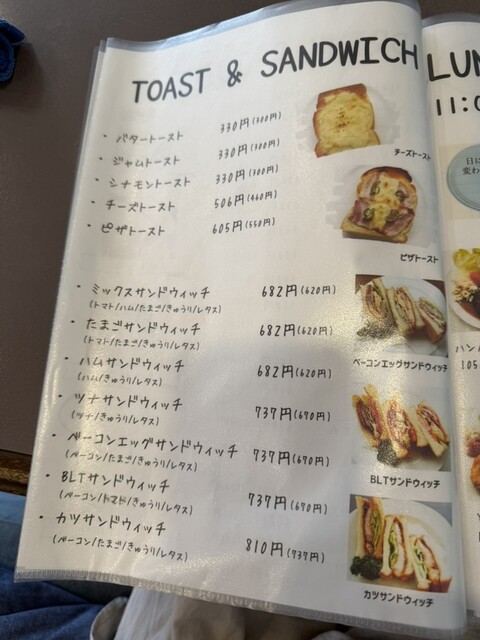 TOAST & SANDWICH
・バタートースト 330円(300円)
・ジャムトースト 330円(300円)
・シナモントースト 330円(300円)
・チーズトースト 506円(460円)
・ピザトースト 605円(550円)
チーズトースト
ピザトースト
・ミックスサンドウィッチ 682円(620円)
(トマト/ハム/たまご/きゅうり/レタス)
・たまごサンドウィッチ 682円(620円)
(トマト/たまご/きゅうり/レタス)
・ハムサンドウィッチ 682円(620円)
(ハム/きゅうり/レタス)
・ツナサンドウィッチ 737円(670円)
(ツナ/きゅうり/レタス)
・ベーコンエッグサンドウィッチ 737円(670円)
(ベーコン/たまご/きゅうり/レタス)
・BLTサンドウィッチ 737円(670円)
(ベーコン/トマト/きゅうり/レタス)
・カツサンドウィッチ 810円(737円)
(ベーコン/たまご/きゅうり/レタス)
ベーコンエッグサンドウィッチ
BLTサンドウィッチ
カツサンドウィッチ
LUN
11:0
日に
変わ
ハン
105